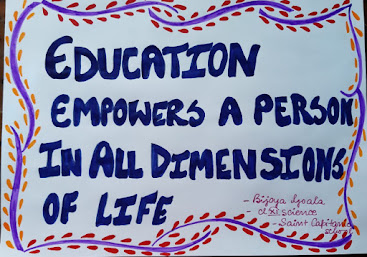 EDUCATION
EMPOWERS A PERSON
IN ALL DIMENSIONS
OF LIFE
- Bijoya Goala
- cl XI science
- Saint Capitanio
school